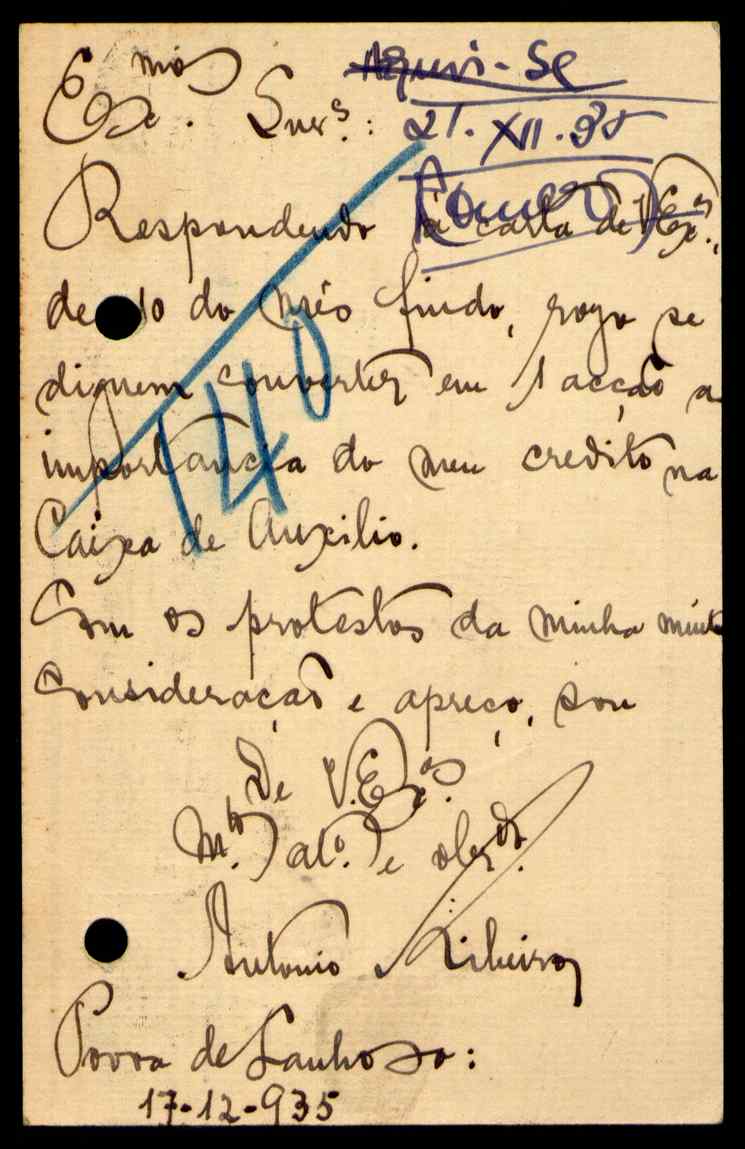 Ex.mos Snrs.:
Arquivi-se
21.XII.35
Respondendo à carta de V. Ex.as,
de 10 do mês findo, rogo se
dignem converter em 1 acção a
importancia do meu credito na
Caixa de Auxilio.
140
Com os protestos da minha muita
consideração e apreço, sou
De V. Ex.as
M.to at.o e obg.do
Antonio Ribeiro
Povoa de Lanhoso:
17-12-935